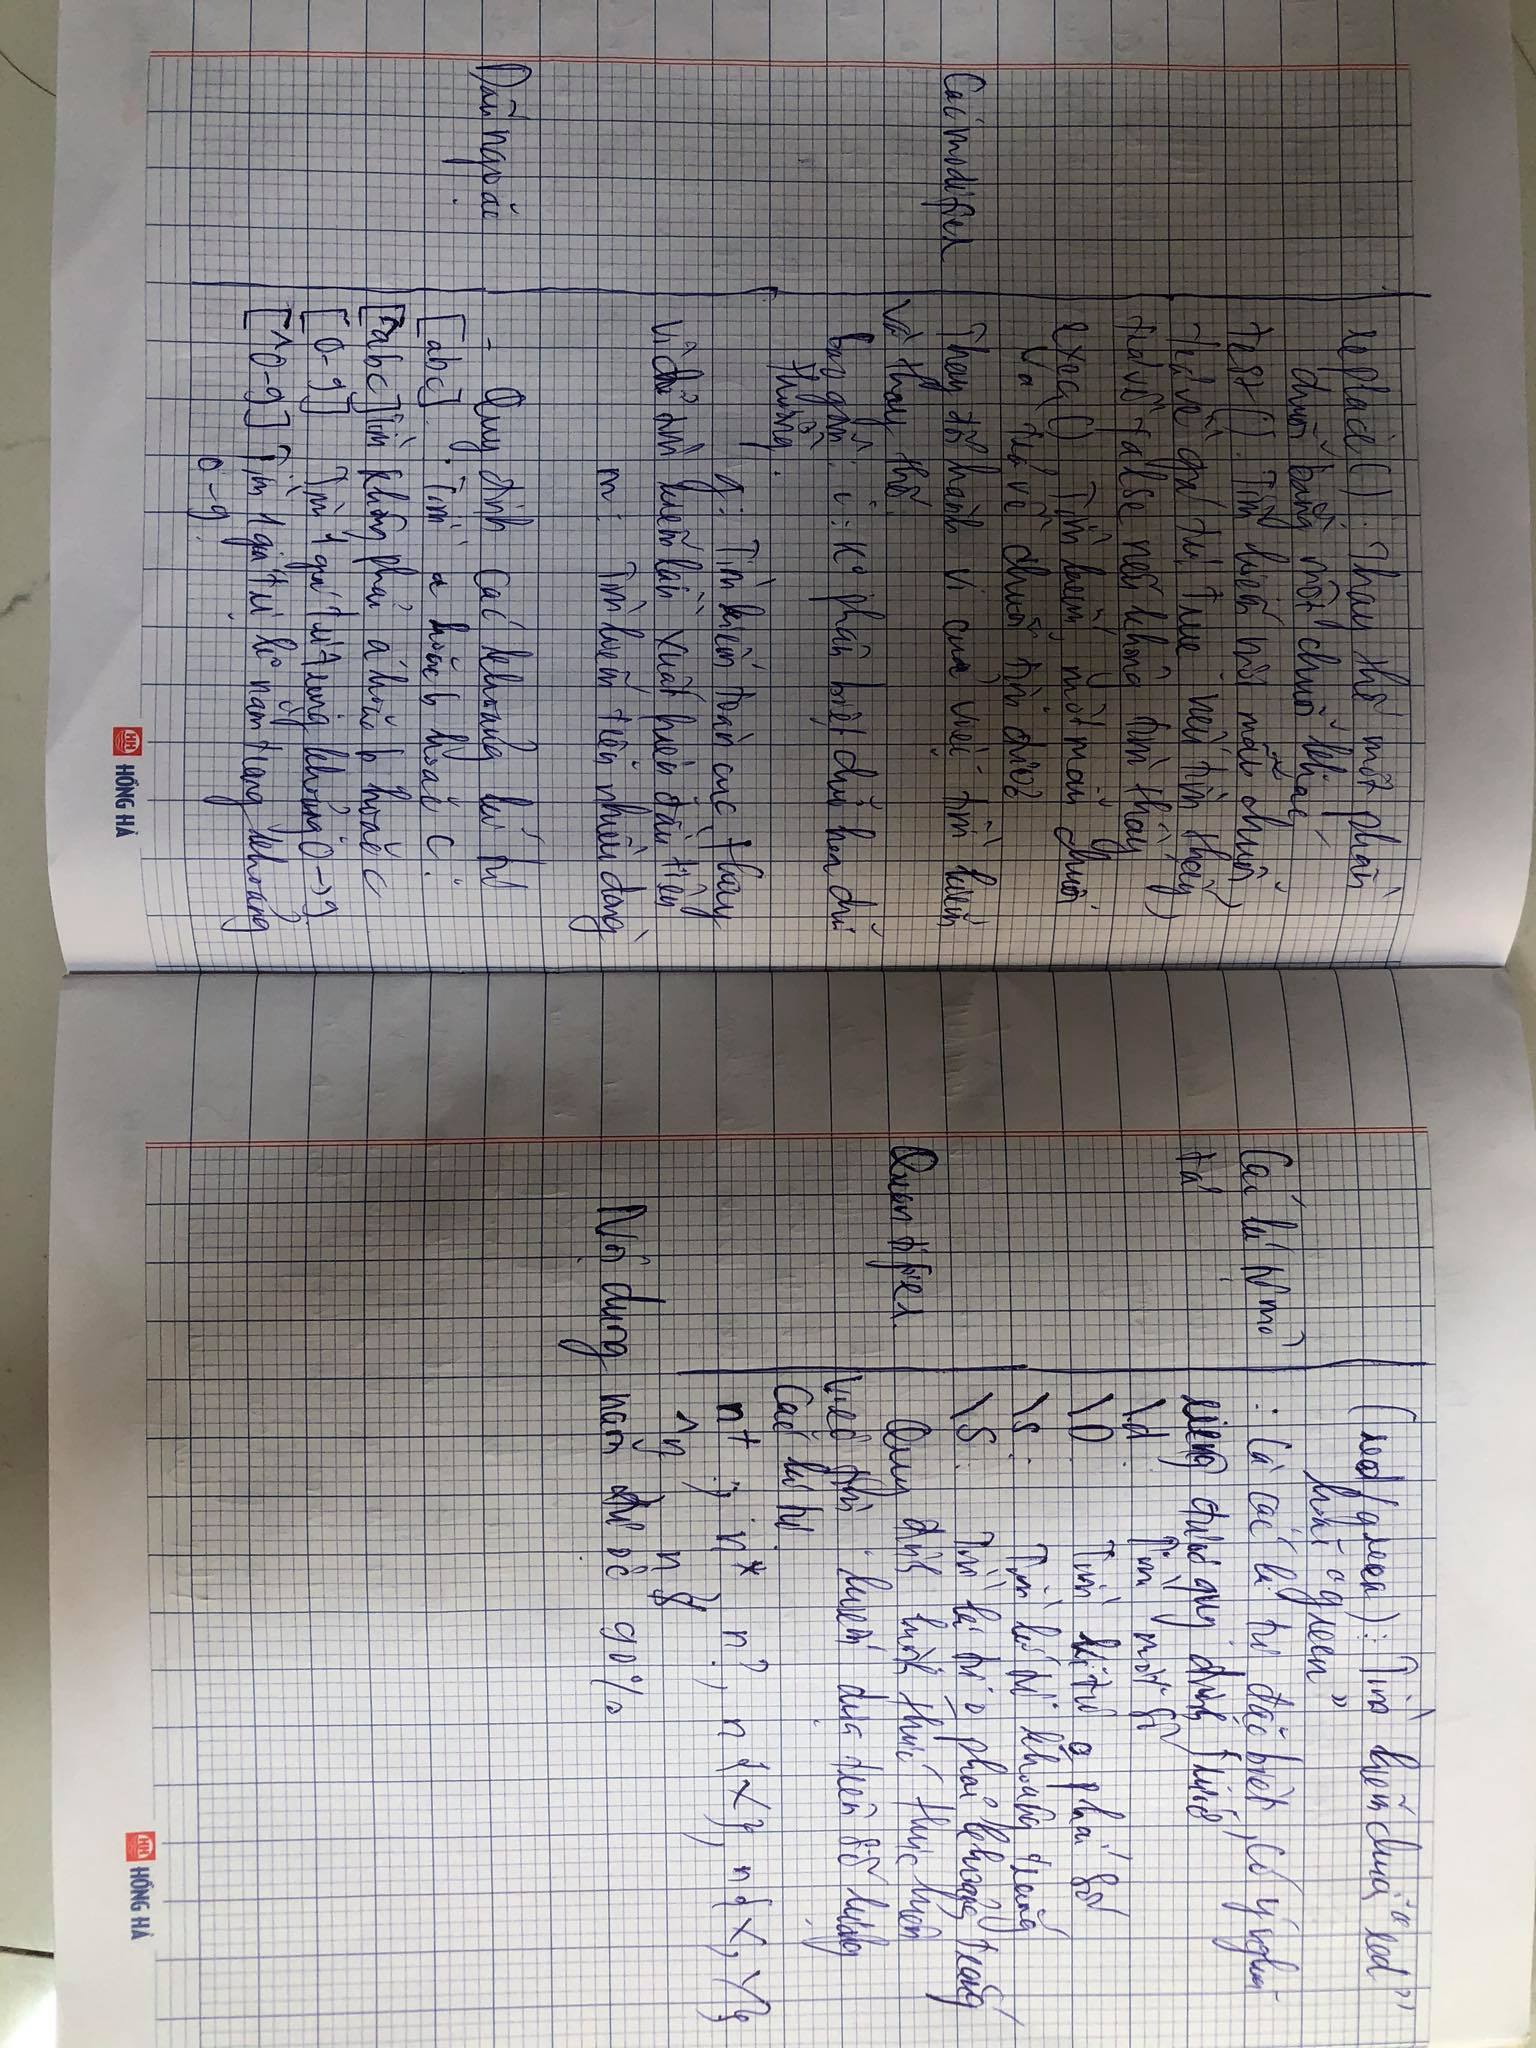 replace(): Thay thế một phần
chuỗi bằng một chuỗi khác
test(): Tìm kiếm một mẫu chuỗi
trả về giá trị true nếu tìm thấy,
trả về false nếu không tìm thấy
exec() Tìm kiếm một mẫu chuỗi
Và trả về chuỗi tìm được
Các modifier
Thay đổi hành vi của việc tìm kiếm
Và thay thế
bao gồm: i: K° phân biệt chữ hoa chữ
thường.
g: Tìm kiếm toàn cục thay
Vì chỉ tìm kiếm lần xuất hiện đầu tiên
m: Tìm kiếm trên nhiều dòng
Dấu ngoặc
- Quy định các khoảng kí tự
[abc]: Tìm a hoặc b hoặc c.
[^abc] Tìm không phải a hoặc b hoặc c
[0-9] Tìm 1 giá trị trong khoảng 0->9.
[^0-9] Tìm 1 giá trị k° nằm trong khoảng
0-9.
HỒNG HÀ
(red/green): Tìm kiếm chuỗi "red"
hoặc "green"
Các kí tự mô
tả
: Là các kí tự đặc biệt, có ý nghĩa
riêng được quy định trước
\d: Tìm một số
\D Tìm kí tự o phải số
\s: Tìm kí tự khoảng trắng
\S: Tìm kí tự o phải khoảng trắng
Quantifier
Quy định cách thức thực hiện
Việc tìm kiếm dựa trên số lượng
Các kí tự.
n+; n*; n?, n{X}, n{X,Y},
^n, n$
Nội dung nắm được 90%
HỒNG HÀ